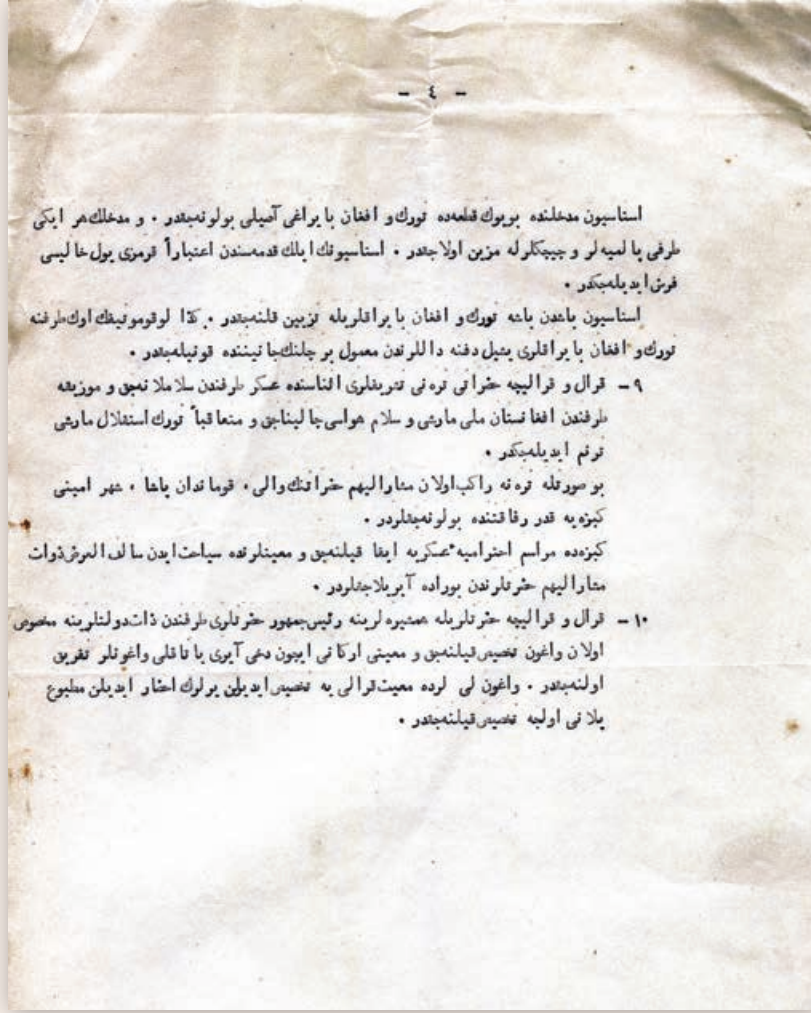 - ٤ -
استاسیون مدخلنده بویوك قطعه‌ده تورك و افغان بایراغی آصیلی بولونه‌جقدر . و مدخلك هر ایکی
طرفی پالمیه‌لر و چیچکلرله مزین اولاجقدر . استاسیونك ایلك قدمه‌سندن اعتباراً قرمزی یول خالیسی
فرش ایدیله‌جکدر .
استاسیون باشدن باشه تورك و افغان بایراقلریله تزیین قلنه‌جقدر . کذا لوقوموتیفك اوك طرفنه
تورك و افغان بایراقلری یشیل دفنه داللرندن معمول بر چلنك جانیننده قونیله‌جقدر .
٩ - قرال و قرالیچه حضراتی تره‌نی تشریفلری اثناسنده عسکر طرفندن سلاملانه‌جق و موزیقه
طرفندن افغانستان ملی مارشی و سلام هواسی چالیناجق و متعاقباً تورك استقلال مارشی
ترنم ایدیله‌جکدر .
بو صورتله تره‌نه راکب اولان مشارالیهم حضراتنك والی ، قوماندان پاشا ، شهر امینی
کبزه‌یه قدر رفاقتنده بولونه‌جقلردر .
کبزه‌ده مراسم احترامیهٔ عسکریه ایفا قیلنه‌جق و معیتلرنده سیاحت ایدن سالف العرض ذوات
مشارالیهم حضرتلرندن بوراده آیریلاجقلردر .
١٠ - قرال و قرالیچه حضرتلریله همشیره‌لرینه رئیس جمهور حضرتلری طرفندن ذات دولتلرینه مخصوص
اولان واغون تخصیص قیلنه‌جق و معیتی ارکانی ایچون دخی آیری یاتاقلی واغونلر تفریق
اولنه‌جقدر . واغون لی لرده معیت قرالی یه تخصیص ایدیلن یرلرك احضار ایدیلن مطبوع
پلانی اولجه تخصیص قیلنه‌جقدر .